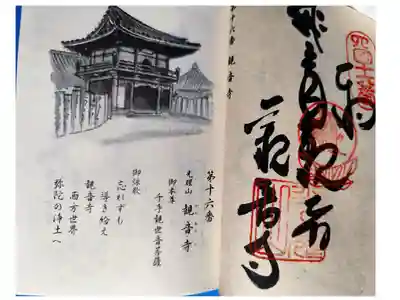 奉納
観音寺
第十六番 観音寺
第十六番
光耀山 観音寺
御本尊
千手観世音菩薩
御詠歌
忘れずも
導き給え
観音寺
西方世界
弥陀の浄土へ